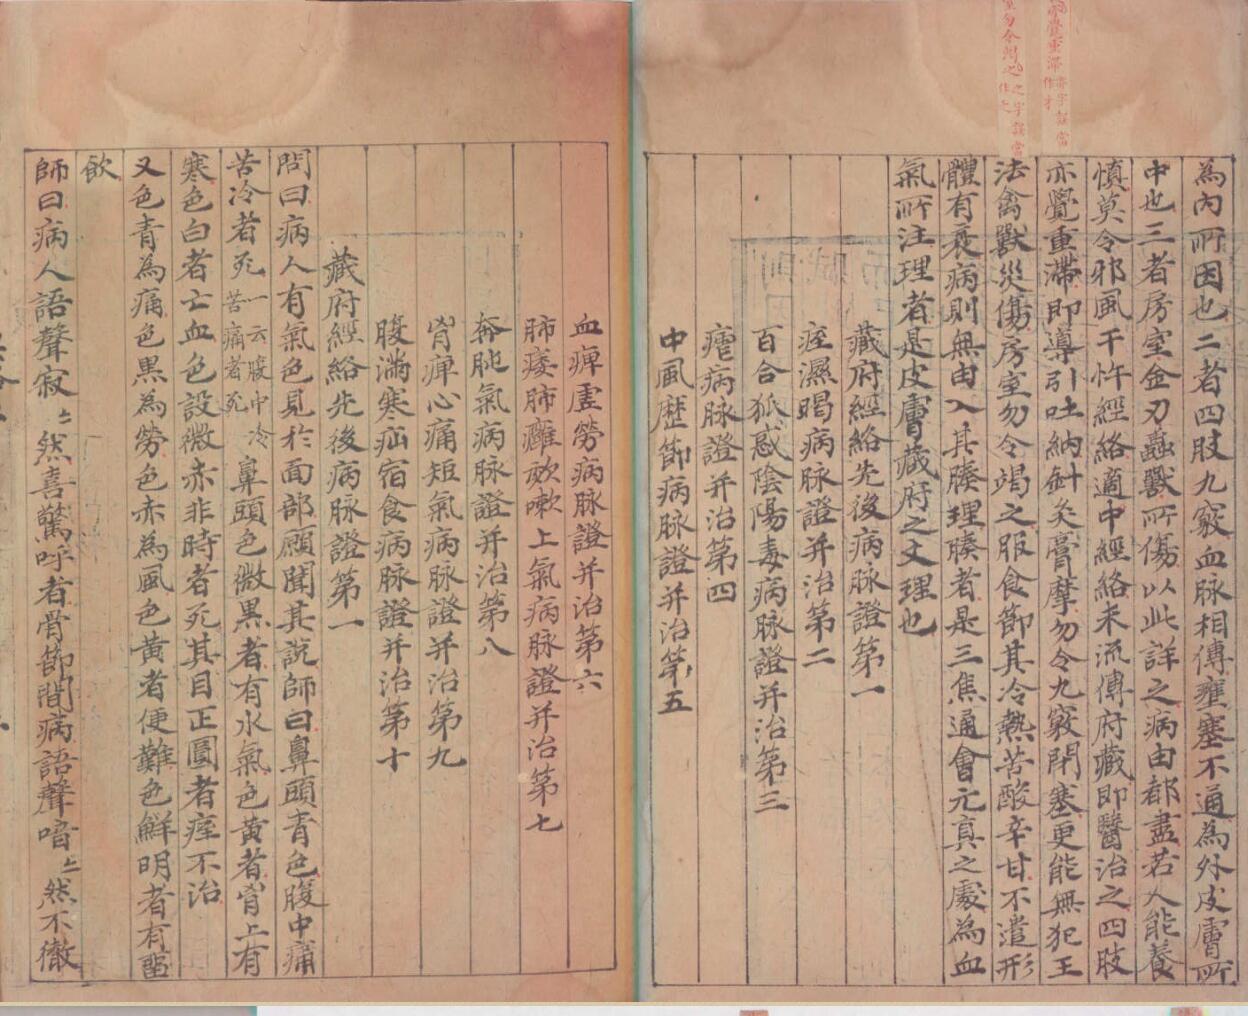 為內所因也二者四肢九竅血脉相傳壅塞不通為外皮膚所
中也三者房室金刃蟲獸所傷以此詳之病由都盡若人能養
慎莫令邪風干忤經絡適中經絡未流傳府藏即醫治之四肢
亦覺重滯即導引吐納針灸膏摩勿令九竅閉塞更能無犯王
法禽獸災傷房室勿令竭之服食節其冷熱苦酸辛甘不遣形
體有衰病則無由入其腠理腠者是三焦通會元真之處為血
氣所注理者是皮膚藏府之文理也
藏府經絡先後病脉證第一
痓濕暍病脉證并治第二
百合狐惑陰陽毒病脉證并治第三
瘧病脉證并治第四
中風歷節病脉證并治第五
血痹虛勞病脉證并治第六
肺痿肺癰欬嗽上氣病脉證并治第七
奔肫氣病脉證并治第八
胷痹心痛短氣病脉證并治第九
腹滿寒疝宿食病脉證并治第十
藏府經絡先後病脉證第一
問曰病人有氣色見於面部願聞其說師曰鼻頭青色腹中痛
苦冷者死一云腹中冷苦痛者死鼻頭色微黑者有水氣色黃者胷上有
寒色白者亡血色設微赤非時者死其目正圓者痓不治
又色青為痛色黑為勞色赤為風色黃者便難色鮮明者有留
飲
師曰病人語聲寂〻然喜驚呼者骨節間病語聲喑〻然不徹
亦覺重滯 亦字誤當作才
勿令竭之 之字誤當作乏